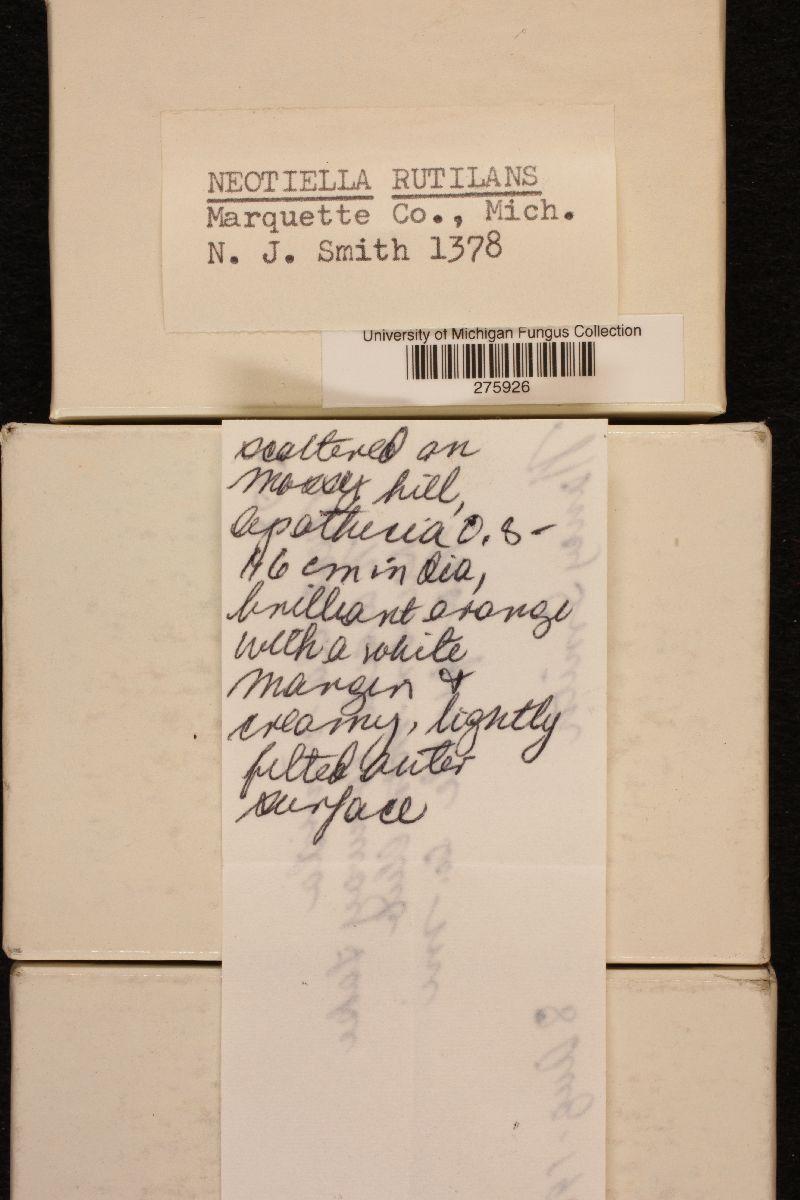 NEOTIELLA RUTILANS
Marquette Co., Mich.
N. J. Smith 1378
University of Michigan Fungus Collection
275926
scattered on
mossy hill,
apothecia 0.8-
1.6 cm in dia,
brilliant orange
with a white
margin &
creamy, lightly
felted outer
surface